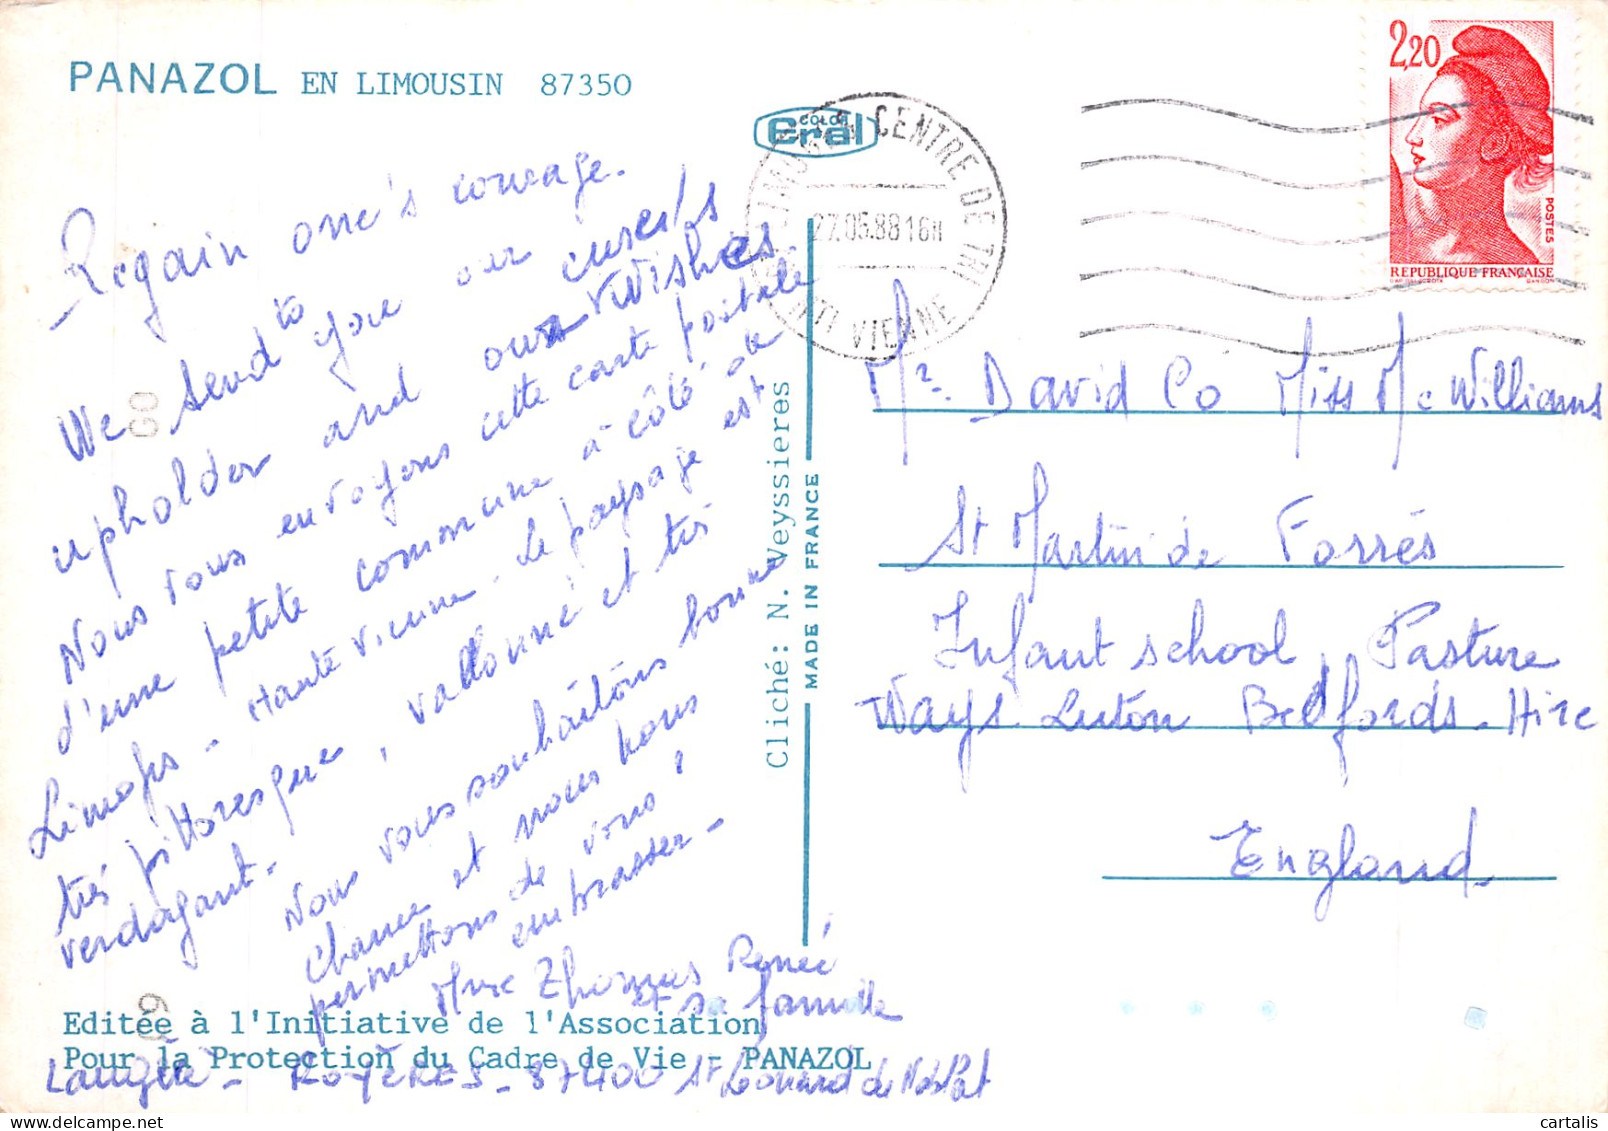 PANAZOL EN LIMOUSIN 87350
COLOR
Eral
CENTRE DE TRI
27.05.88 16H
VIENNE
2,20
POSTES
REPUBLIQUE FRANCAISE
GANDON
Regain one's courage.
We send to you our
upholder and our wishes
Nous vous envoyons cette carte postale
d'une petite commune à côté de
Limoges - Haute Vienne - Le paysage est
très pittoresque, vallonné et très
verdoyant -
Nous vous souhaitons bonne
chance et nous nous
permettons de vous
embrasser -
Mme Thomas Renée
et sa famille
ROYÈRES - 87400 St Léonard de Noblat
Mr. David Co Miss Mc Williams
St Martin de Forrés
Infant school, Pasture
Ways Luton Bedfords-Hire
England
Cliché: N. Veyssieres
MADE IN FRANCE
Editée à l'Initiative de l'Association
Pour la Protection du Cadre de Vie - PANAZOL
cartalis
delcampe.net